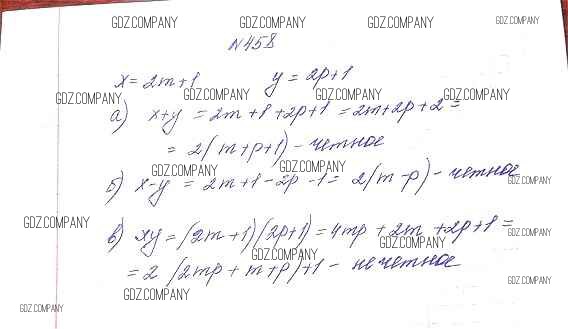 GDZ.COMPANY GDZ.COMPANY GDZ.COMPANY GDZ.COMPANY
N458
x = 2m+1 y = 2p+1
GDZ.COMPANY GDZ.COMPANY GDZ.COMPANY GDZ.COMPANY
а) x+y = 2m+1+2p+1 = 2m+2p+2 =
= 2(m+p+1) - четное
GDZ.COMPANY GDZ.COMPANY GDZ.COMPANY
б) x-y = 2m+1-2p-1 = 2(m-p) - четное
GDZ.COMPANY GDZ.COMPANY
в) xy = (2m+1)(2p+1) = 4mp+2m+2p+1 =
GDZ.COMPANY
= 2(2mp+m+p)+1 - нечетное
GDZ.COMPANY GDZ.COMPANY
GDZ.COMPANY